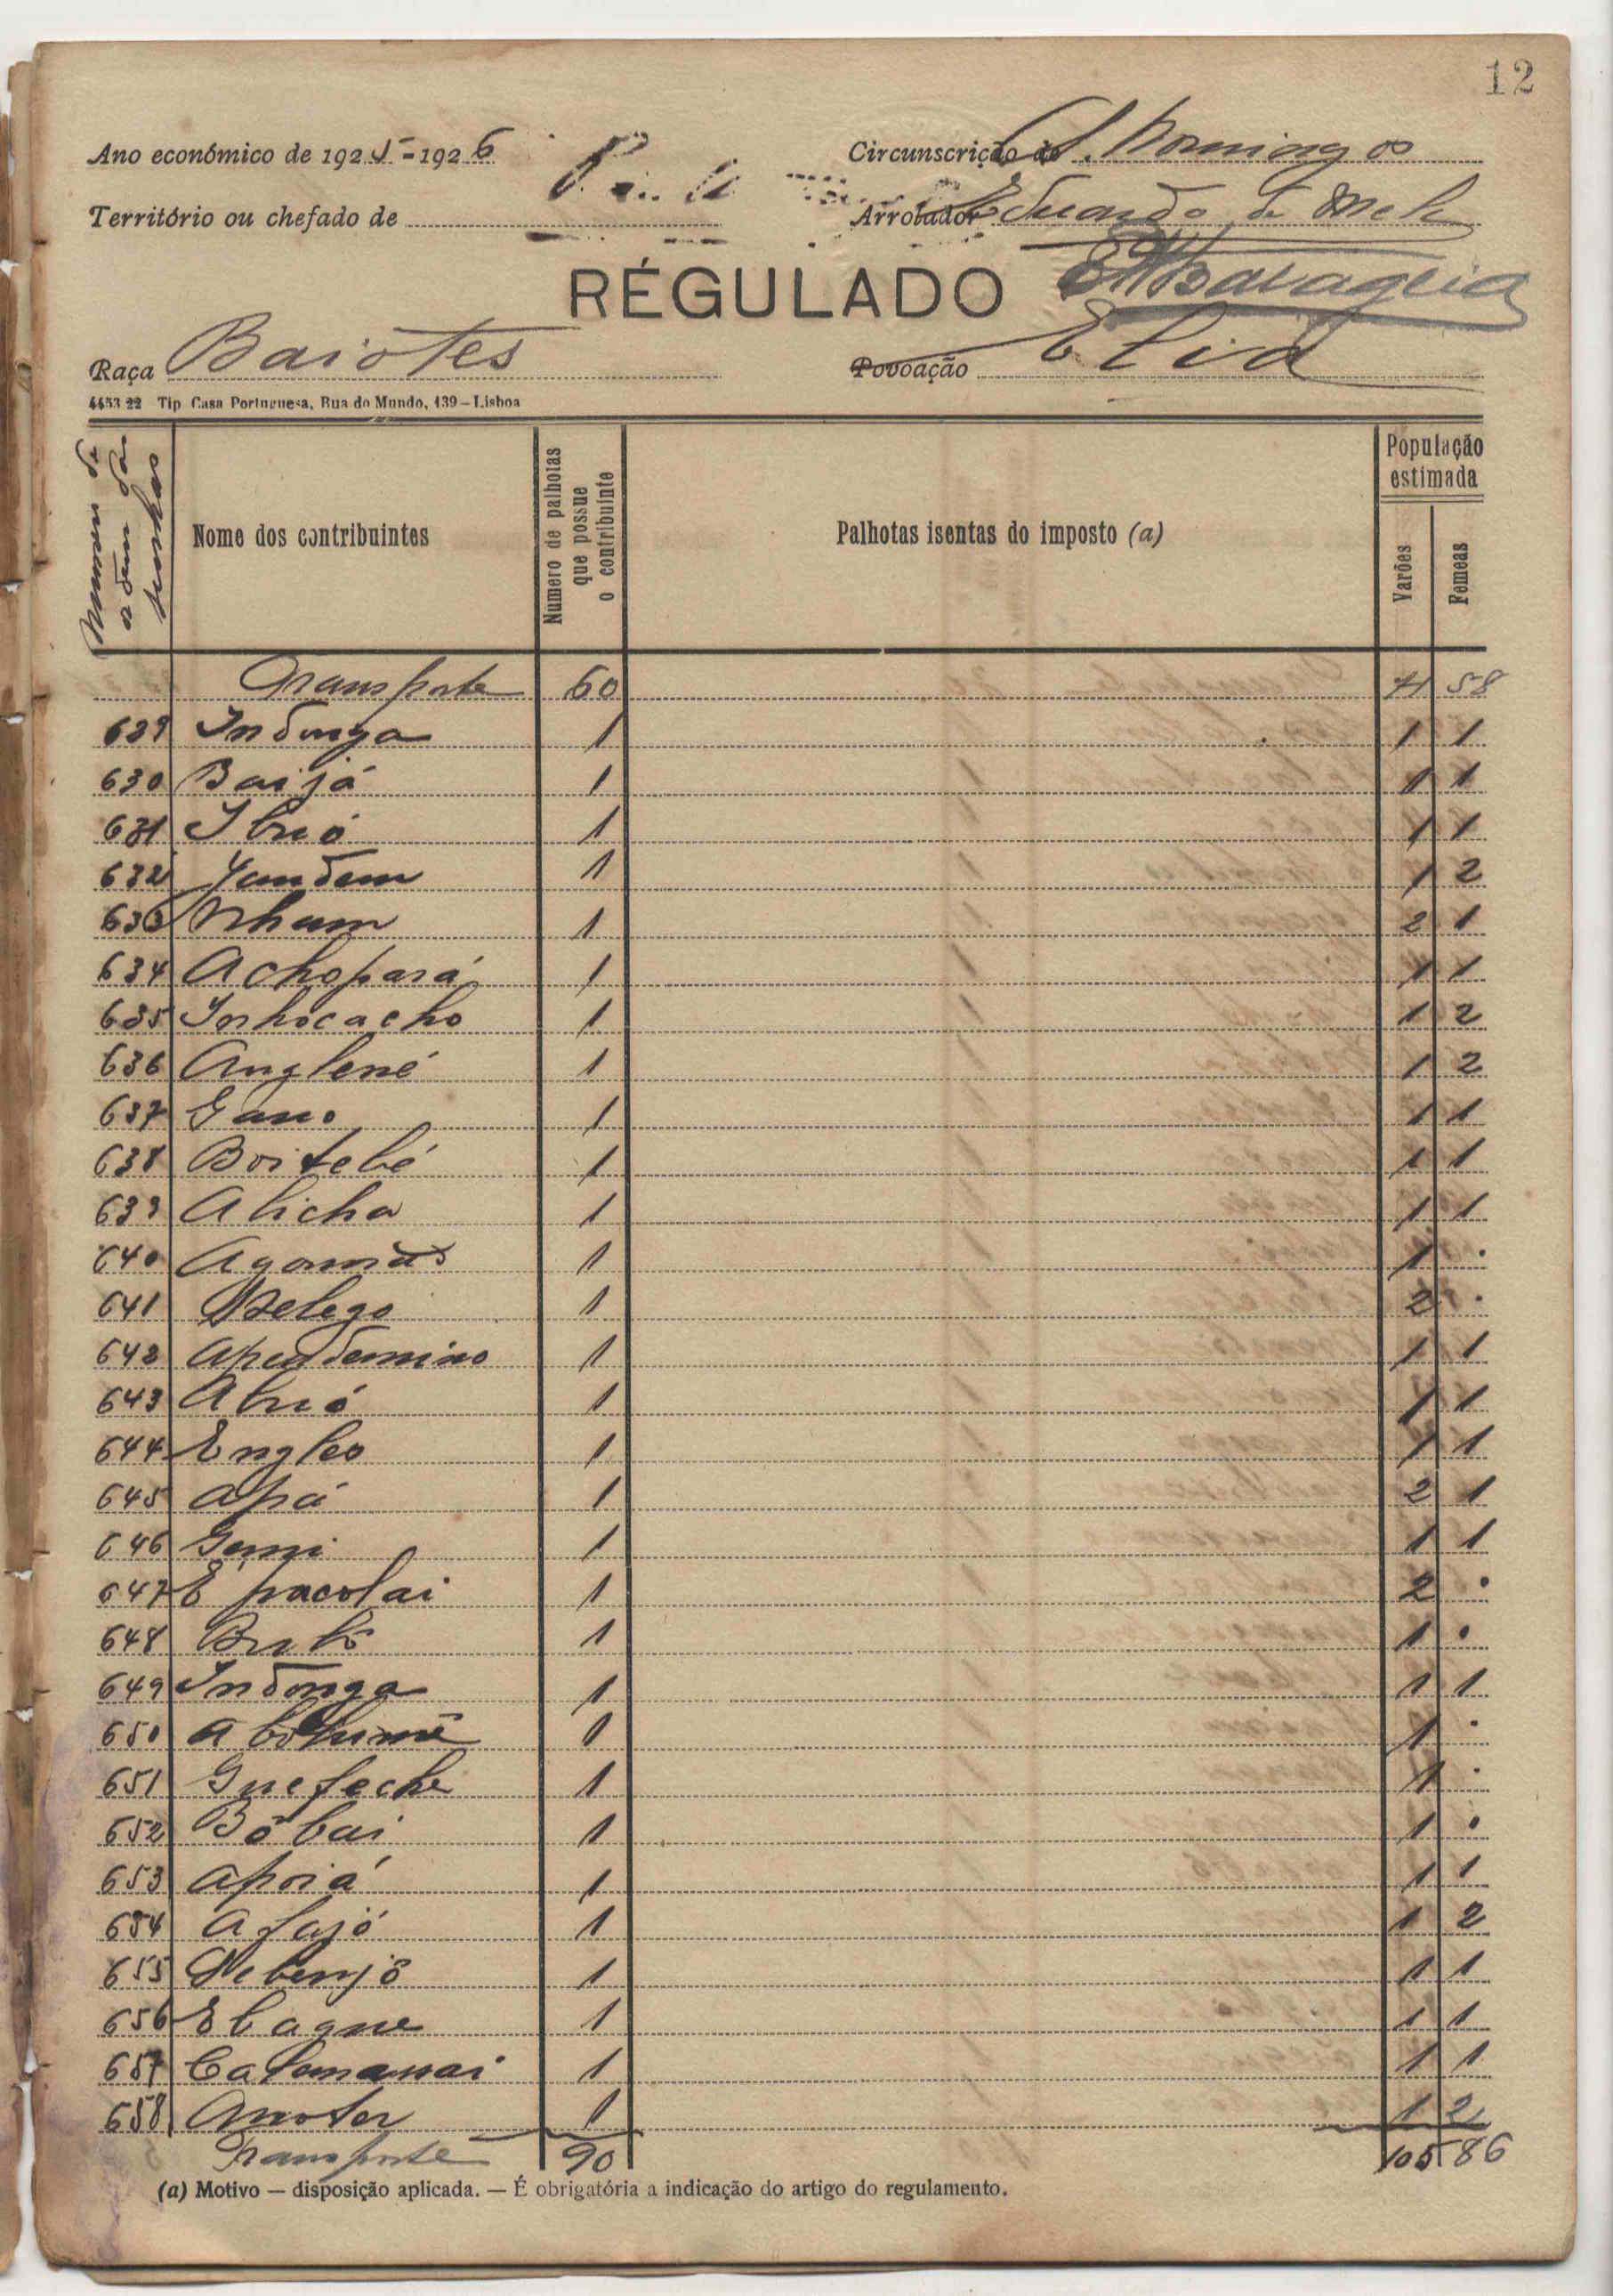 12
Ano económico de 1925-1926
Circunscrição de S. Domingos
Território ou chefado de
Arrolador Eduardo de Melo
RÉGULADO
Raça Baiotes
Povoação Elia
4453 22 Tip Casa Portuguesa, Rua do Mundo, 139 – Lisboa
Numero de ordem das senhas
Nome dos contribuintes
Numero de palhotas que possue o contribuinte
Palhotas isentas do imposto (a)
População estimada
Varões
Femeas
Transporte 60 71 58
629 Indonga 1 1 1
630 Baijá 1 1 1
631 Ibrió 1 1 1
632 Jandem 1 1 2
633 Nham 1 2 1
634 Achopará 1 1 1
635 Inhocacho 1 1 2
636 Anglené 1 1 2
637 Gano 1 1 1
638 Boitebé 1 1 1
639 Alicha 1 1 1
640 1 1 .
641 1 2 .
642 1 1 1
643 Abrió 1 1 1
644 Engleo 1 1 1
645 Apá 1 2 1
646 1 1 1
647 Epacolai 1 2 .
648 1 1 .
649 Indonga 1 1 1
650 1 1 .
651 Guefeche 1 1 .
652 Bôbai 1 1 .
653 Apoiá 1 1 1
654 Afajó 1 1 2
655 1 1 1
656 Ebagne 1 1 1
657 1 1 1
658 1 1 2
Transporte 90 105 86
(a) Motivo — disposição aplicada. — É obrigatória a indicação do artigo do regulamento.